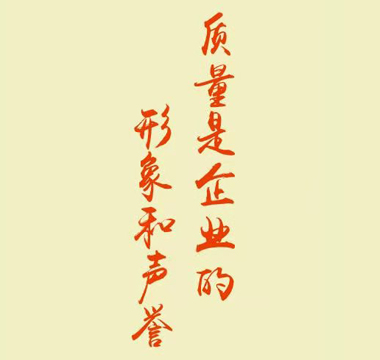 质量是企业的
形象和声誉